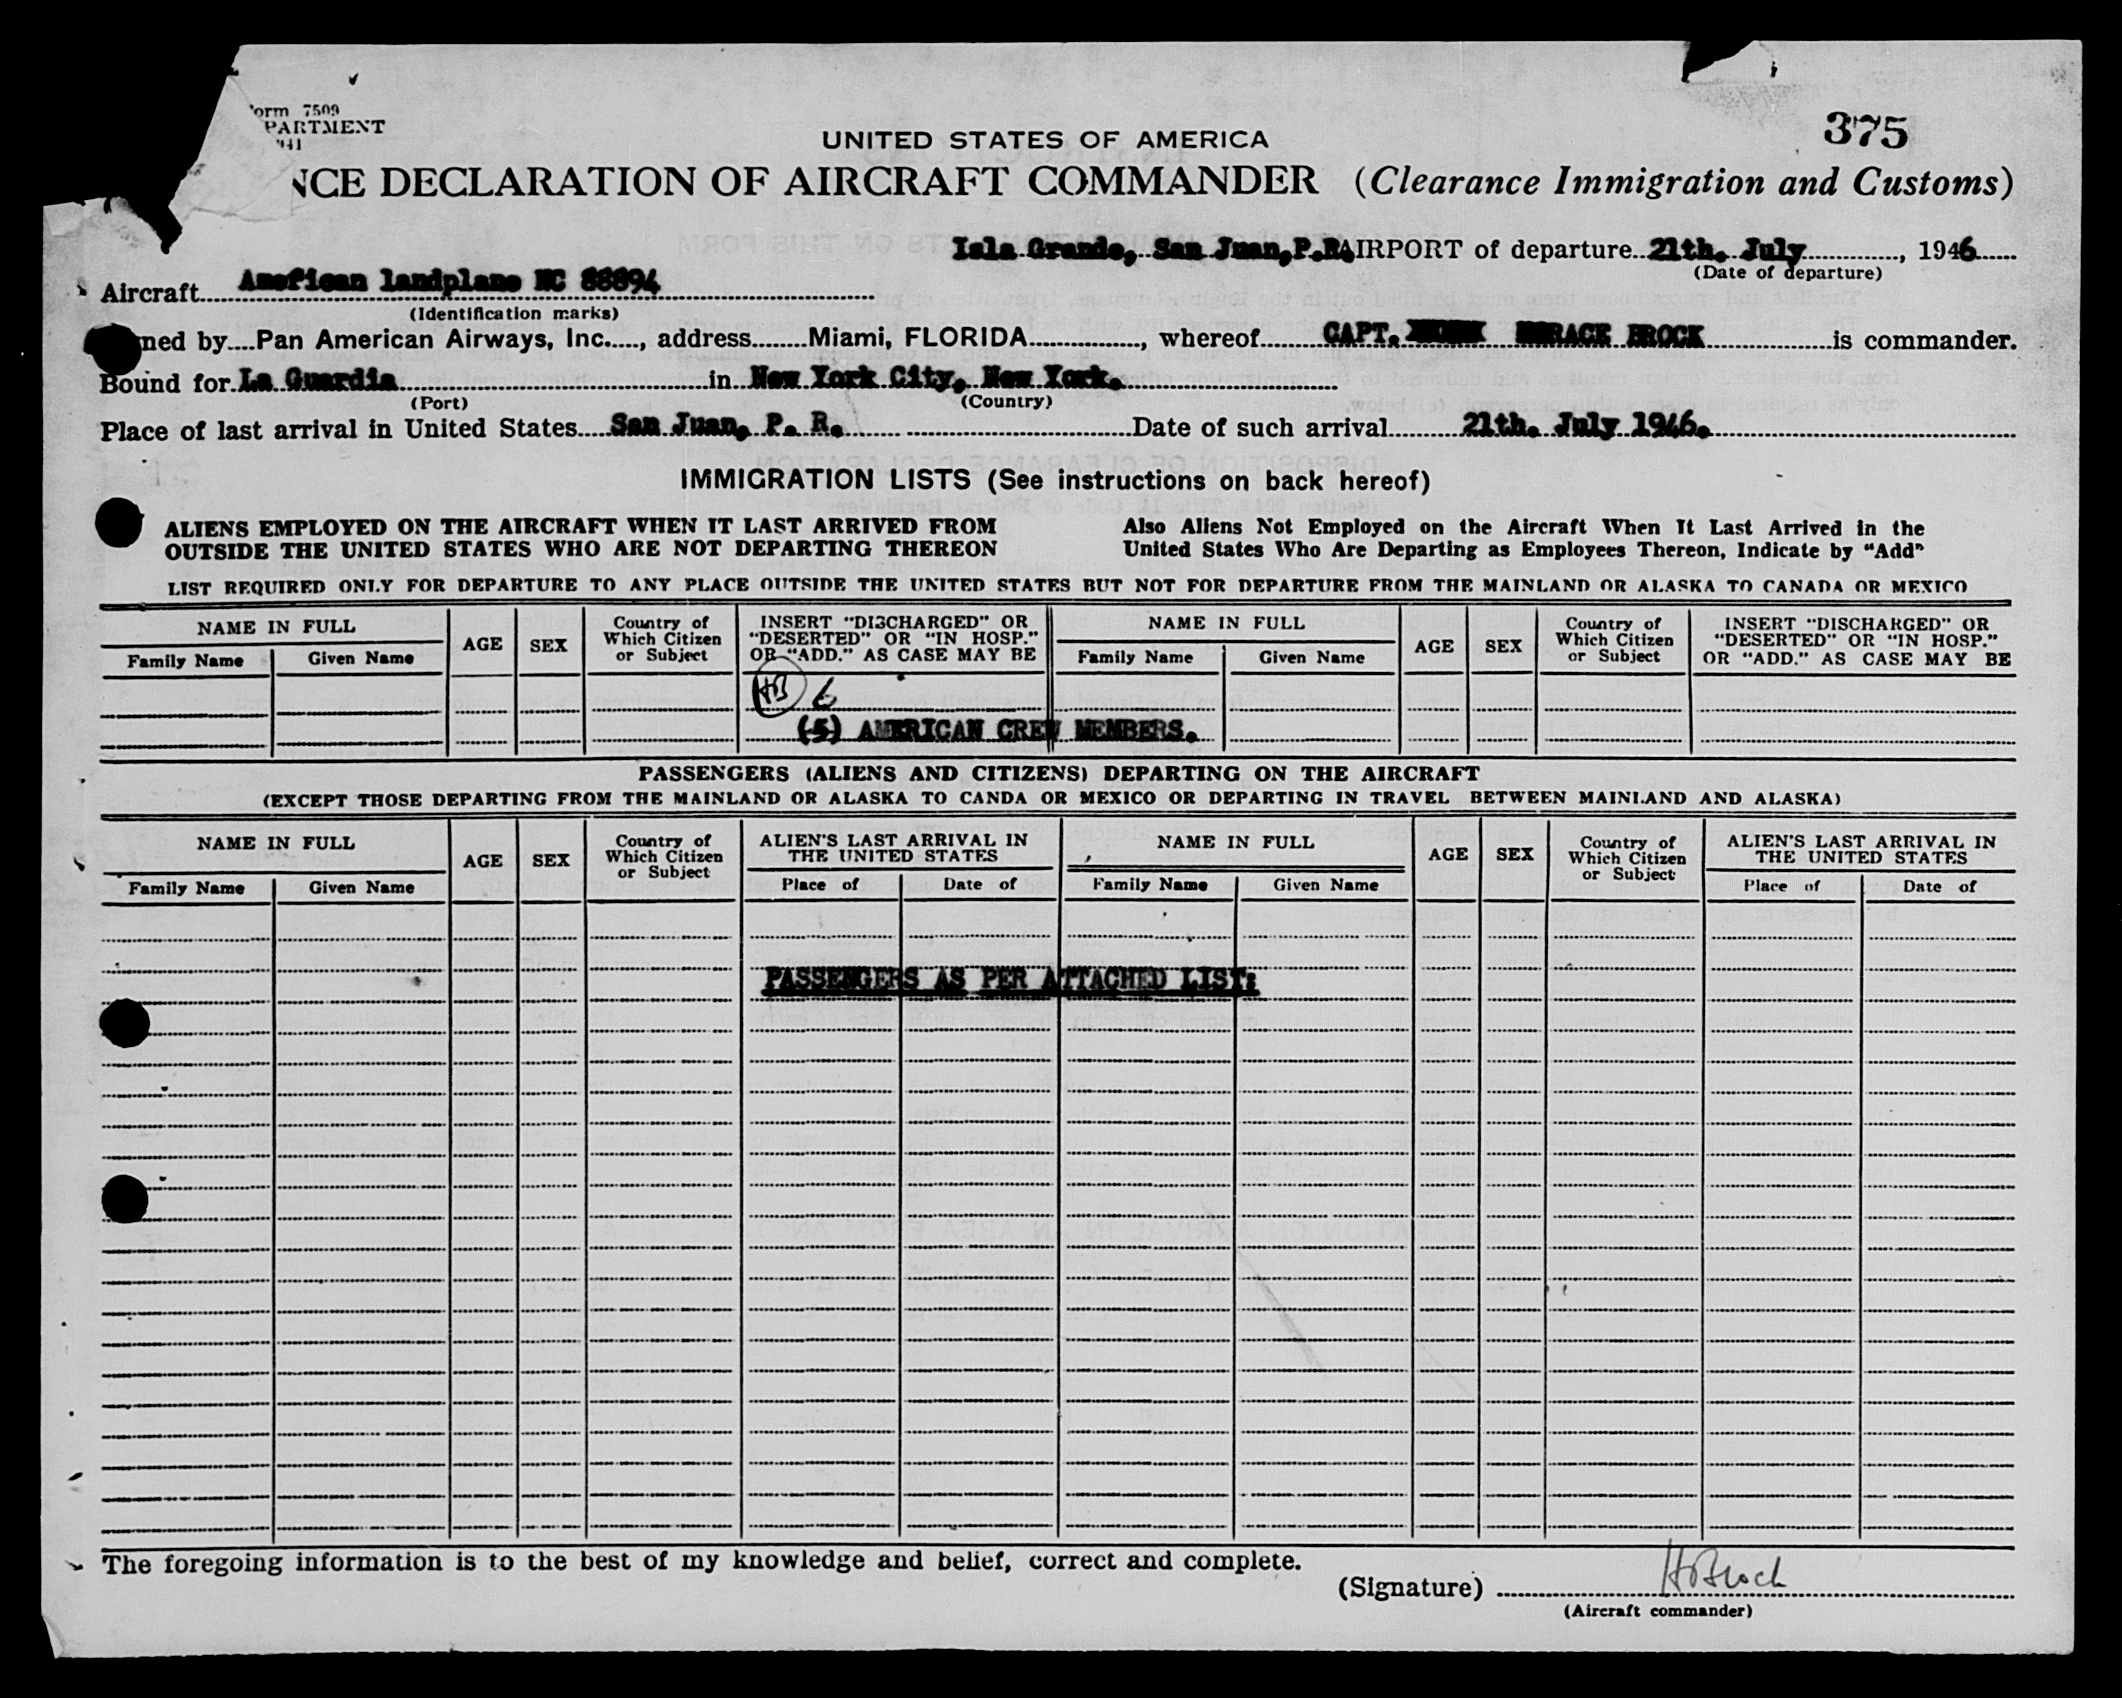 orm 7509
PARTMENT
941
375
UNITED STATES OF AMERICA
NCE DECLARATION OF AIRCRAFT COMMANDER (Clearance Immigration and Customs)
Isla Grande, San Juan, P.R. AIRPORT of departure 21th. July, 1946
(Date of departure)
Aircraft American landplane NC 88894
(Identification marks)
ned by Pan American Airways, Inc., address Miami, FLORIDA, whereof CAPT. HORACE BROCK is commander.
Bound for La Guardia in New York City, New York.
(Port) (Country)
Place of last arrival in United States San Juan, P. R. Date of such arrival 21th. July 1946.
IMMIGRATION LISTS (See instructions on back hereof)
ALIENS EMPLOYED ON THE AIRCRAFT WHEN IT LAST ARRIVED FROM
OUTSIDE THE UNITED STATES WHO ARE NOT DEPARTING THEREON
Also Aliens Not Employed on the Aircraft When It Last Arrived in the
United States Who Are Departing as Employees Thereon, Indicate by "Add"
LIST REQUIRED ONLY FOR DEPARTURE TO ANY PLACE OUTSIDE THE UNITED STATES BUT NOT FOR DEPARTURE FROM THE MAINLAND OR ALASKA TO CANADA OR MEXICO
NAME IN FULL
Family Name Given Name
AGE
SEX
Country of
Which Citizen
or Subject
INSERT "DISCHARGED" OR
"DESERTED" OR "IN HOSP."
OR "ADD." AS CASE MAY BE
NAME IN FULL
Family Name Given Name
AGE
SEX
Country of
Which Citizen
or Subject
INSERT "DISCHARGED" OR
"DESERTED" OR "IN HOSP."
OR "ADD." AS CASE MAY BE
HB 6
(5) AMERICAN CREW MEMBERS.
PASSENGERS (ALIENS AND CITIZENS) DEPARTING ON THE AIRCRAFT
(EXCEPT THOSE DEPARTING FROM THE MAINLAND OR ALASKA TO CANDA OR MEXICO OR DEPARTING IN TRAVEL BETWEEN MAINLAND AND ALASKA)
NAME IN FULL
Family Name Given Name
AGE
SEX
Country of
Which Citizen
or Subject
ALIEN'S LAST ARRIVAL IN
THE UNITED STATES
Place of Date of
NAME IN FULL
Family Name Given Name
AGE
SEX
Country of
Which Citizen
or Subject
ALIEN'S LAST ARRIVAL IN
THE UNITED STATES
Place of Date of
PASSENGERS AS PER ATTACHED LIST:
The foregoing information is to the best of my knowledge and belief, correct and complete.
(Signature) HBrock
(Aircraft commander)